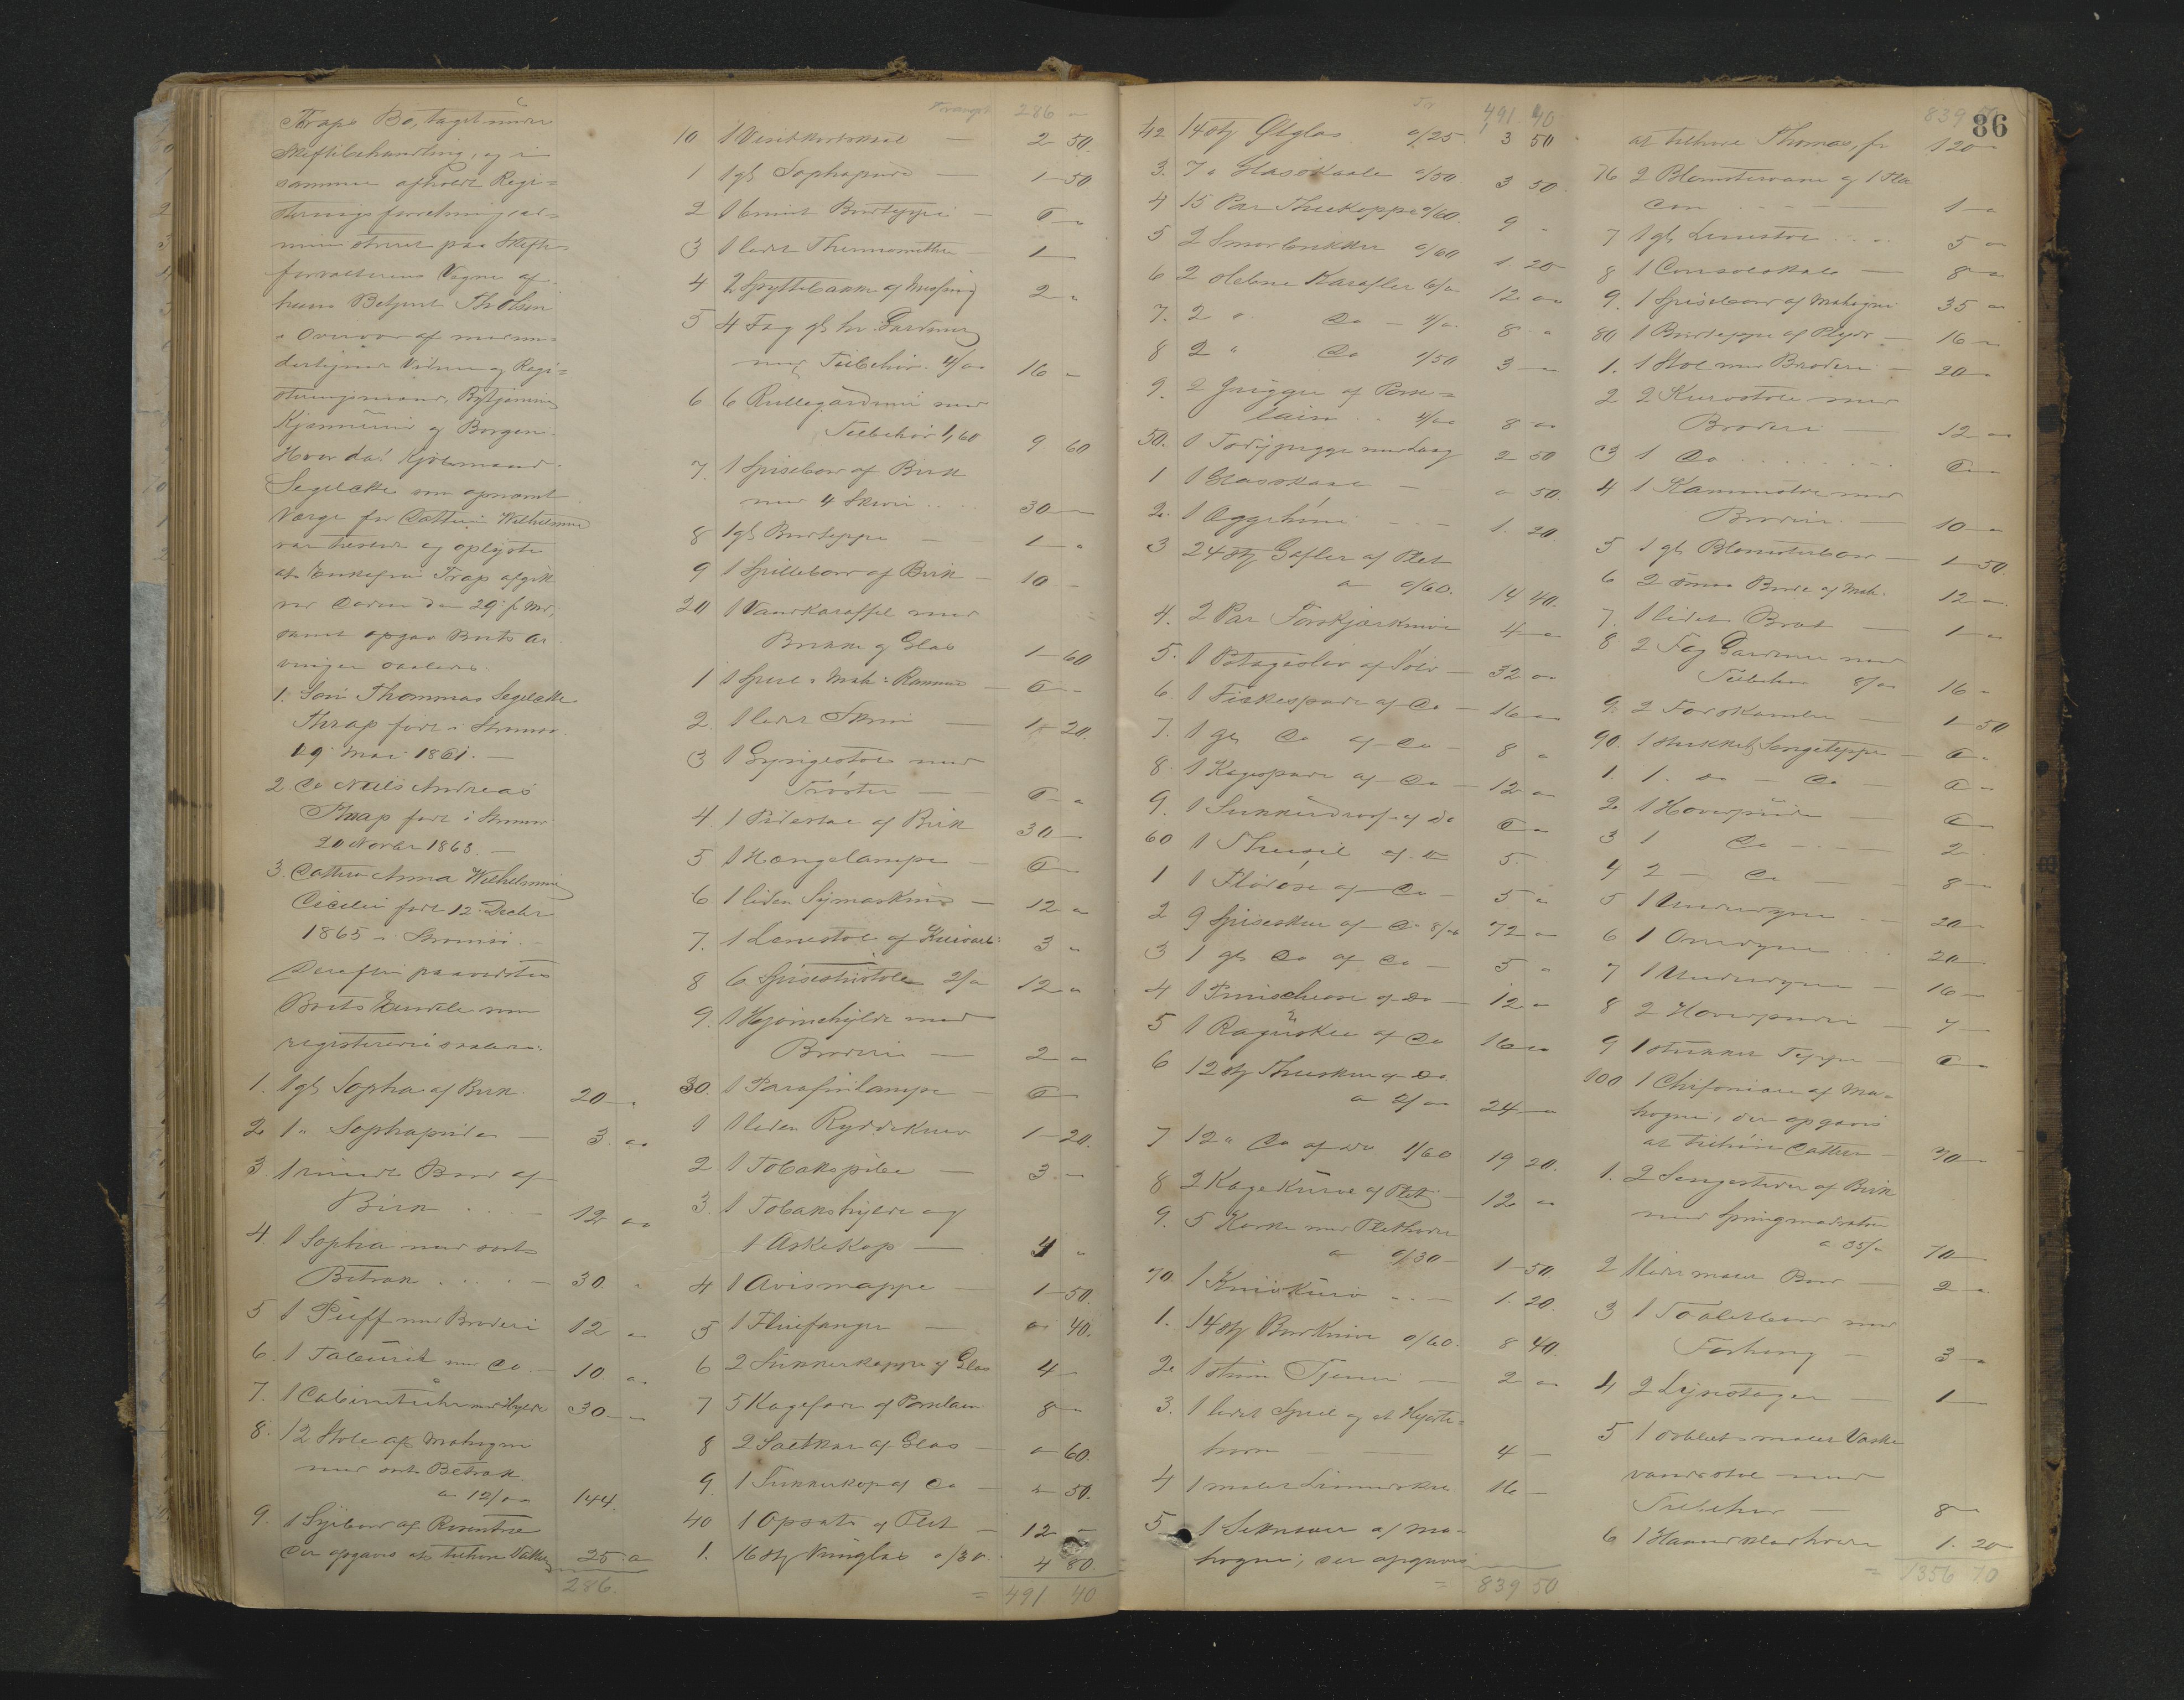 Thraps Bo, taget under
Skiftebehandling, og i
samme afholdt Regi=
streringsforretning, ad=
ministreret paa Skifte-
forvalterens Vegne af
hans Betjent Th Olsen
i Overvær af medun=
dertegnede Vidner og Regi=
streringsmænd, Bytjenerne
og Borgen.
Hvor da! Kjøbmand
Segelcke som opnævnt
Værge for Datteren Wilhelmine
var tilstede og oplyste
at Enkefru Trap afgik
ved Døden den 29 f. Md,
samt opgav Boets Ar
vinger saaledes:
1. Søn Thommas Segelcke
Thrap født i Tromsø
19 Mai 1861. —
2 Do Niels Andreas
Thrap født i Tromsø
20 Novbr 1863. —
3. Datteren Anna Wilhelmine
Cicilie født 12 Decbr
1865 i Tromsø. —
Derefter paavistes
Boets Eiendele som
registreredes saaledes:
1. 1 gl Sopha af Birk 20 "
2 1 " Sophapude — 3. "
3 1 rundt Bord af
Birk . . — 12 "
4. 1 Sopha med sort
Betræk . . . — 30. "
5 1 Puff med Broderi 12 "
6. 1 Taburet med Do. — 10 "
7. 1 Cabinetsuhr med Hylde 30 — "
8. 12 Stole af Mahogni
med sort Betræk
a 12/00 144.
9. 1 Sybord af Rosentræ
der opgaves at tilhøre Datteren 25 "
286.
Transpt 286 "
10 1 Visitkortskaal — 2 50.
1 1 gl Sophapude — 1 — 50
2 1 brunt Bordteppe — 6 — "
3 1 lidet Thermometter — 1 —
4 2 Spyttebakker af Messing 2 "
5 4 Fag gl hv. Gardiner
med Tilbehør 4/00 16 "
6 6 Rullegardiner med
Tilbehør 1,60 9 60
7. 1 Spisebord af Birk
med 4 Skiver . . . 30 —
8 1 gl Bordteppe — 1 — "
9 1 Spillebord af Birk — 10 —
20 1 Vandkaraffel med
Brikke og Glas 1 — 60
1 1 Speil i Mah: Ramme — 6 —
2. 1 lidet Skrin — 1 — 20.
3 1 Gyngestol med
Trøster — — 6 — "
4. 1 Pidestal af Birk 30 —
5 1 Hængelampe — 6 —
6 1 liden Symaskine — 12 "
7. 1 Lænestol af Kurvarb: 3 "
8 6 Spisestustole 2/00 12 "
9. 1 Hjørnehylde med
Broderi — 2 "
30. 1 Parafinlampe — 6 —
1 1 liden Ryddekurv 1 — 20.
2 1 Tobakspibe — 3. —
3. 1 Tobakshylde og
1 Askekop — 4 "
4 1 Avismappe — 1 — 50.
5 1 Fluefanger — " 40.
6 2 Sukkerkopper af Glas 4 —
7 5 Kagefade af Porselæn 8 — "
8 2 Saltkar af Glas " 60.
9. 1 Sukkerkop af Do — " 50.
40 1 Opsats af Plet — 12 —
1. 16 stk Vinglas 0/30. 4 80.
= 491 40
Tr 491. 40
42 14 stk Ølglas 0/25. 3 50
3. 7 " Glasskaale 0/50 3 50.
4 15 Par Theekopper 0/60. 9 "
5 2 Smørbrikker 0/60 1 20
6 2 slebne Karafler 6/00 12 "
7. 2 " Do — 4/00 8 "
8 2 " Do 1/50 3 —
9. 2 Jugger af Porse=
læin . 4/00 8 "
50. 1 Todijugge med Laag 2 50
1 1 Glasvase — — " 50.
2. 1 Æggehøne — - 1. 20.
3 24 stk Gafler af Plet
a 0/60. 14 40.
4. 2 Par Forskjærknive 4 — "
5. 1 Potageslev af Sølv — 32 "
6. 1 Fiskespade af Do — 16 —
7. 1 gl Do af Do — 8 "
8. 1 Kagespade af Do — 12 "
9. 1 Sukkerdrys af Do 6 "
60 1 Theesil af Do 5. "
1 1 Flødeøse af Do — 5 "
2 9 Spiseskeer af Do 8/00 72 "
3 1 gl Do af Do — 5 "
4 1 Punscheøse af Do — 12 "
5 1 Raguskee af Do 16 "
6 12 stk Theskeer af Do
a 2/00 24 — "
7 12 " Do af Do 1/60 19 20.
8 2 Kagekurve af Plet — 12 "
9. 5 Korke med Plethoder
a 0/30 — 1 — 50
70. 1 Knivkurv . . — 1. 20.
1. 14 stk Bordknive 0/60. 8 40.
2. 1 — 2 "
3. 1 lidet Speil og et Hjorte=
horn — — 4 —
4 1 malet Linnedskab 16 —
5 1 Sekretær af Ma-
hogni, der opgaves
= 839 50
839 50
86
at tilhøre Thomas, for 120 —
76 2 Blomstervaser og 1 Fla
con . . — — 1 — "
7 1 gl Lænestol . . . 5 "
8 1 Consolskab — 8 "
9. 1 Spisebord af Mahogni 35 "
80 1 Bordteppe af Plyds — 16 —
1. 1 Stol med Broderi — 20 —
2 2 Kurvstole med
Broderi — 12 "
3 1 Do . . . . . 6 —
4 1 Kaminstol med
Broderi — 10 — "
5 1 gl Blomsterbord — 1 — 50.
6 2 smaa Borde af Mah. 12 "
7. 1 lidet Bord — 1 — "
8 2 Fag Gardiner med
Tilbehør 8/00 16 "
9. 2 Forskamler — 1 — 50
90. 1 strikket Sengeteppe — 6 "
1. 1. Do — Do 6 "
2. 1 Hovedpude — 6 —
3 1 Do - — 2
4 2 — Do — 8 —
5 1 Underdyne . . 20 —
6 1 Overdyne . . . 20 —
7 1 Underdyne — 16 —
8 2 Hovedpuder — 4 —
9 1 strikket Teppe — 6 —
100 1 Chifoniere af Ma=
hogni, der opgaves
at tilhøre Datteren — 70 —
1. 2 Sengesteder af Birk
med Springmadrasser
a 35/00 70 —
2 1 lidet malet Bord — 2 "
3 1 Toaletbord med
Forheng — 3 "
4 2 Lysestager — 1 —
5 1 dobbelt malet Vaske
vandsstol med
Tilbehør — 8 "
6 1 Haandklædholder 1. 20
= 1356 70